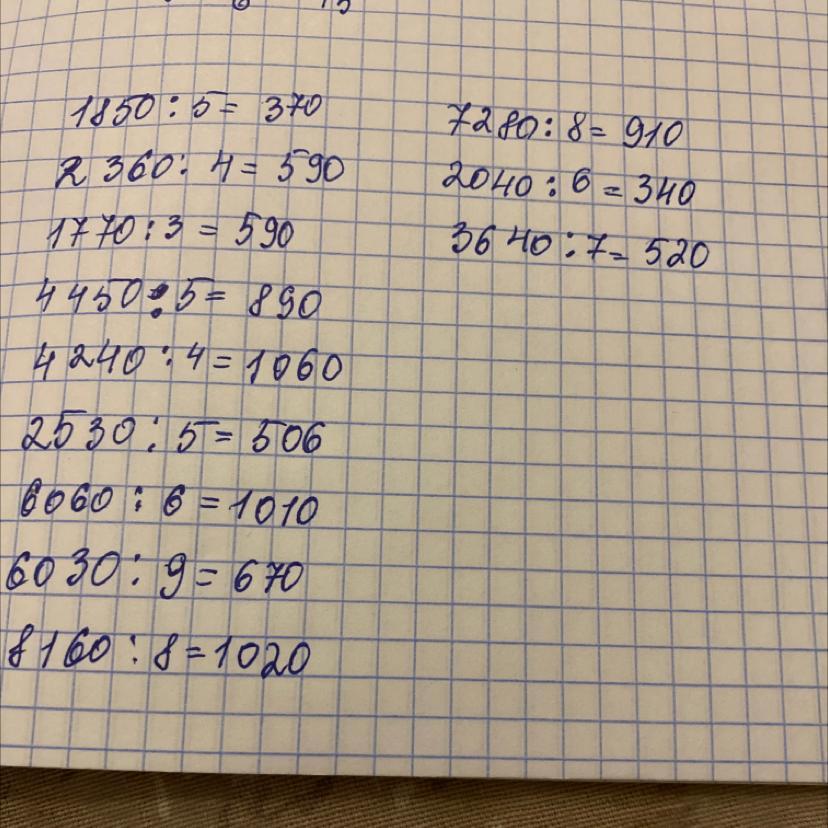 1850 : 5 = 370
2360 : 4 = 590
1770 : 3 = 590
4450 : 5 = 890
4240 : 4 = 1060
2530 : 5 = 506
6060 : 6 = 1010
6030 : 9 = 670
8160 : 8 = 1020
7280 : 8 = 910
2040 : 6 = 340
3640 : 7 = 520